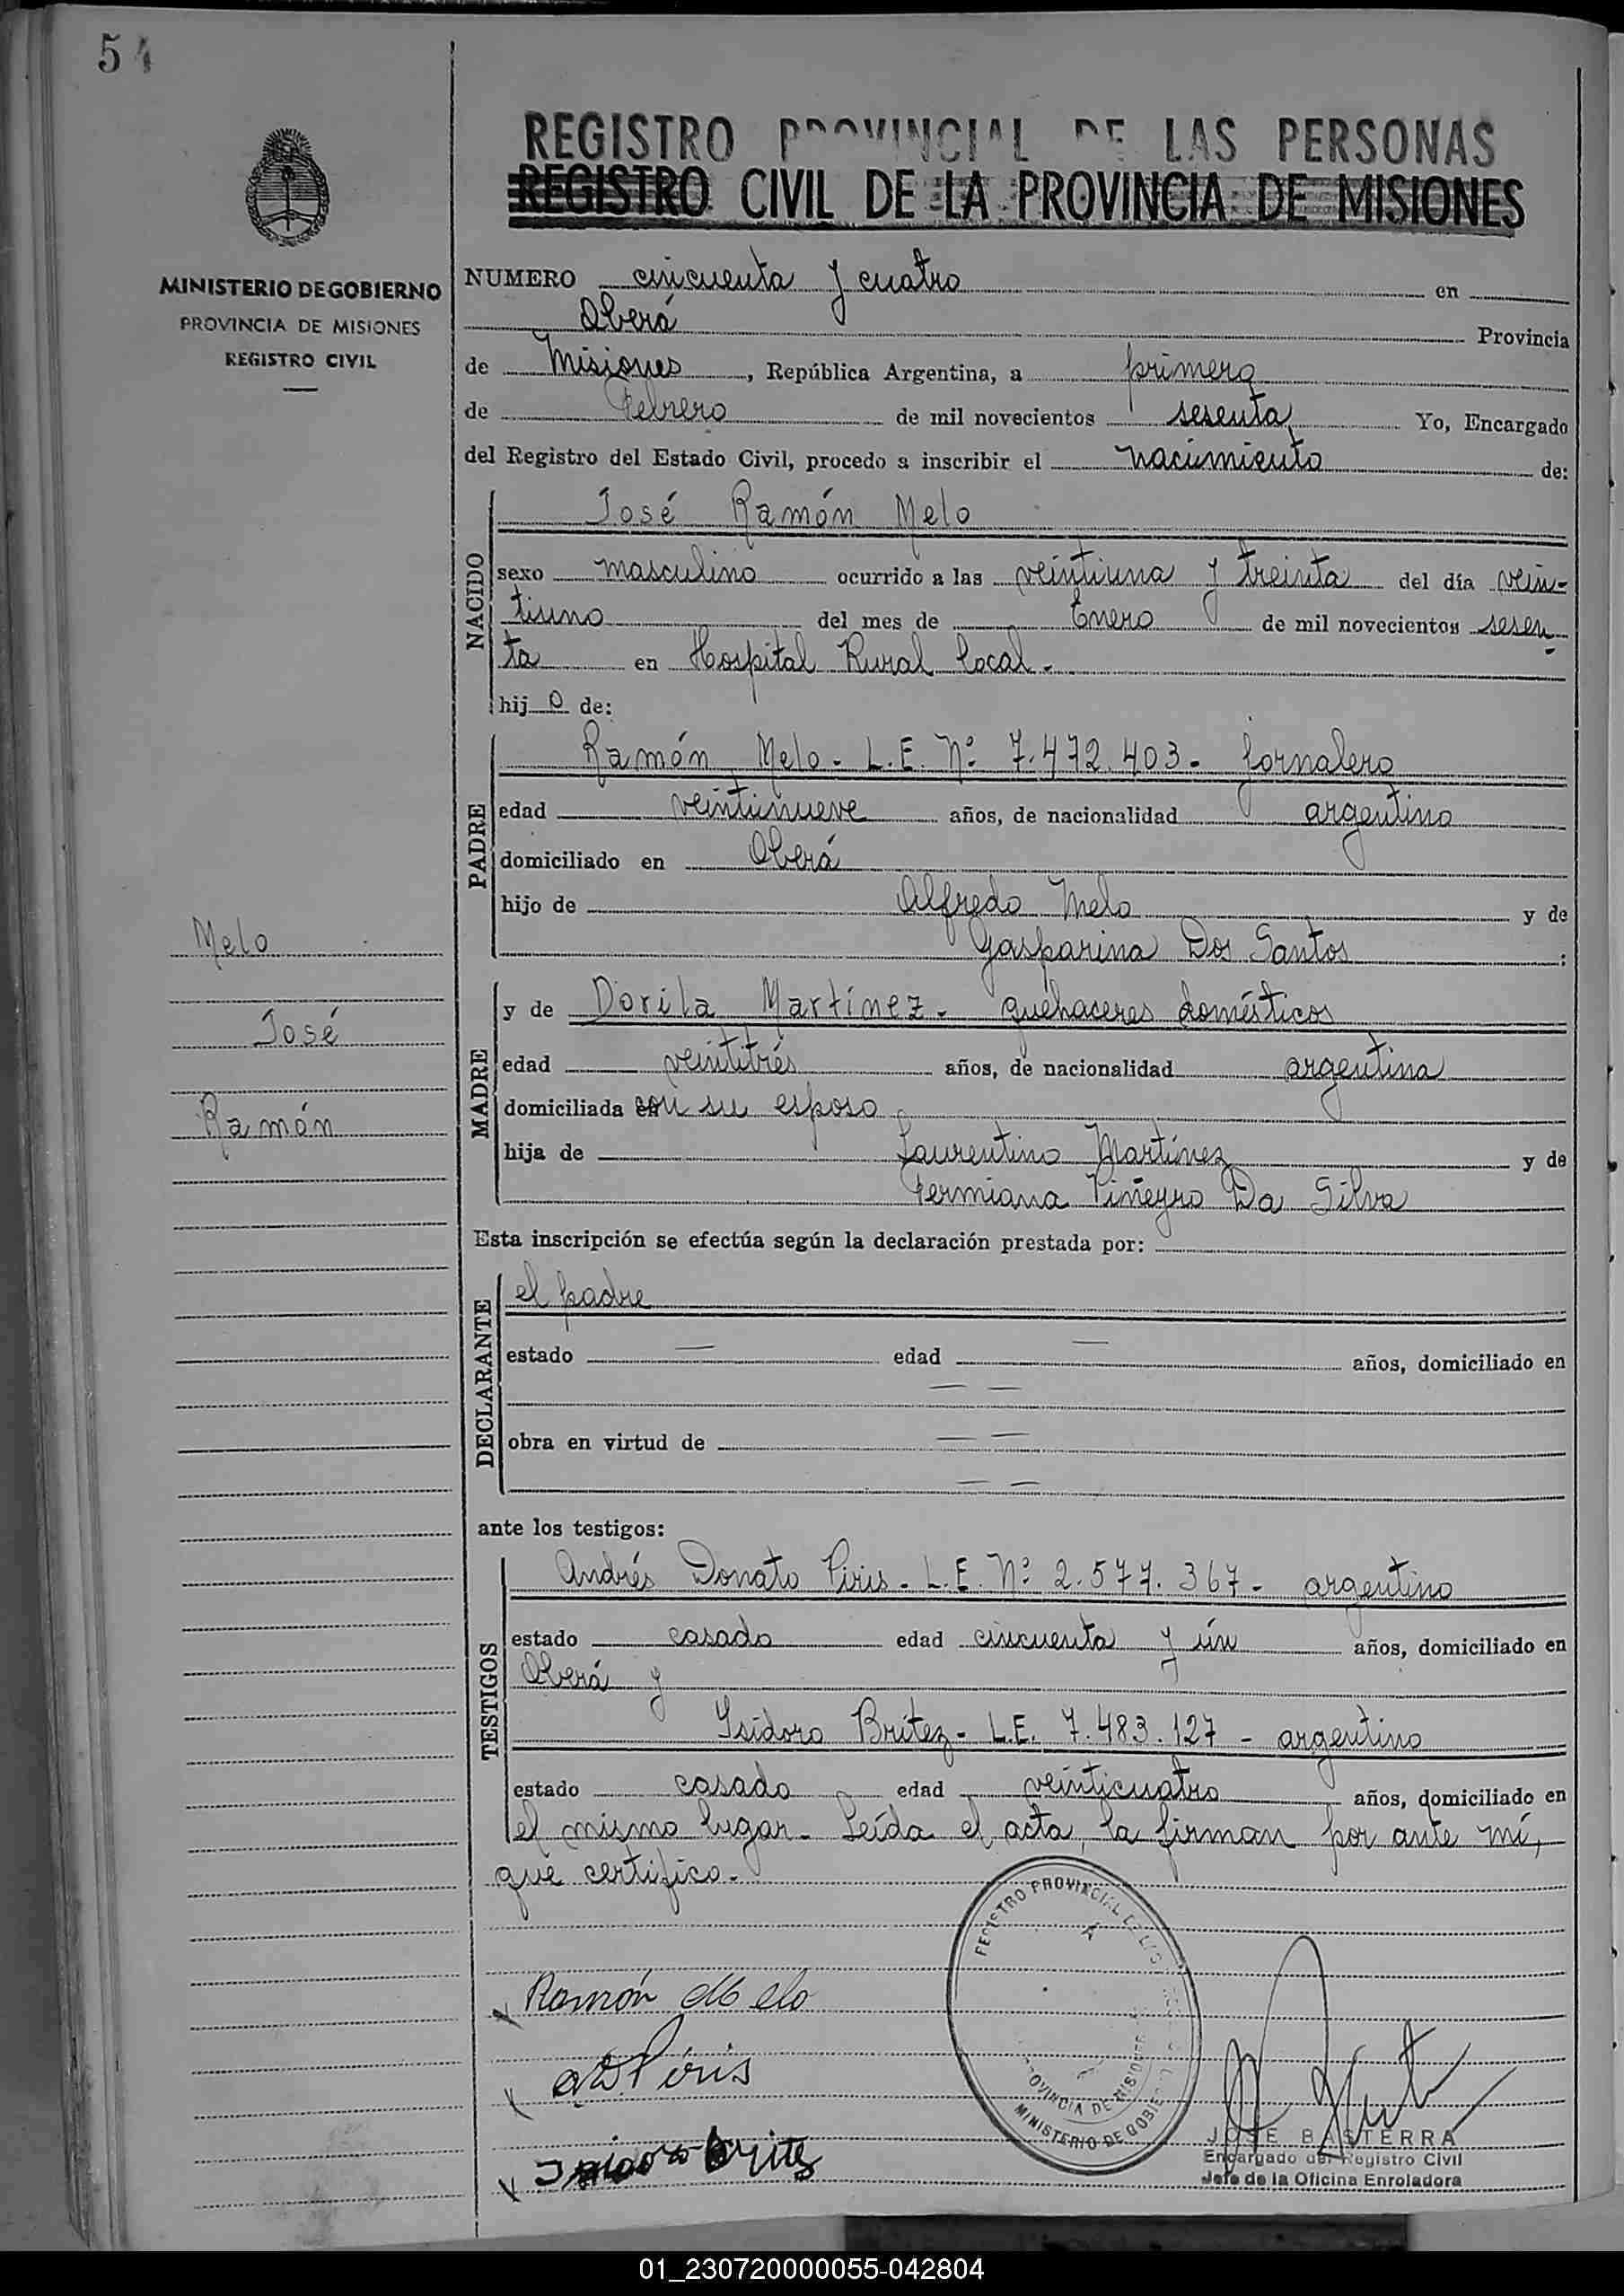 54
REGISTRO PROVINCIAL DE LAS PERSONAS
REGISTRO CIVIL DE LA PROVINCIA DE MISIONES
MINISTERIO DE GOBIERNO
PROVINCIA DE MISIONES
REGISTRO CIVIL
NUMERO cincuenta y cuatro en
Oberá Provincia
de Misiones, República Argentina, a primero
de Febrero de mil novecientos sesenta, Yo, Encargado
del Registro del Estado Civil, procedo a inscribir el nacimiento de:
NACIDO
José Ramón Melo
sexo masculino ocurrido a las veintiuna y treinta del día vein-
tiuno del mes de Enero de mil novecientos sesen-
ta en Hospital Rural local.-
hijo de:
PADRE
Ramón Melo.- L.E. Nº 7.472.403.- Jornalero
edad veintinueve años, de nacionalidad argentino
domiciliado en Oberá
hijo de Alfredo Melo y de
Gasparina Dos Santos :
MADRE
y de Dorila Martínez.- quehaceres domésticos
edad veintitrés años, de nacionalidad argentina
domiciliada con su esposo
hija de Laurentino Martínez y de
Fermiana Piñeyro Da Silva
Melo
José
Ramón
Esta inscripción se efectúa según la declaración prestada por:
DECLARANTE
el padre
estado — edad — años, domiciliado en
— —
obra en virtud de — —
— —
ante los testigos:
TESTIGOS
Andrés Donato Piris.- L.E. Nº 2.577.367- argentino
estado casado edad cincuenta y ún años, domiciliado en
Oberá y
Isidoro Britez- L.E. 7.483.127 - argentino
estado casado edad veinticuatro años, domiciliado en
el mismo lugar.- Leída el acta, la firman por ante mí,
que certifico.-
Ramón Melo
A D Piris
Isidoro Britez
REGISTRO PROVINCIAL DE LAS
PROVINCIA DE MISIONES
MINISTERIO DE GOBIERNO
JOSE BASTERRA
Encargado del Registro Civil
Jefe de la Oficina Enroladora
01_230720000055-042804